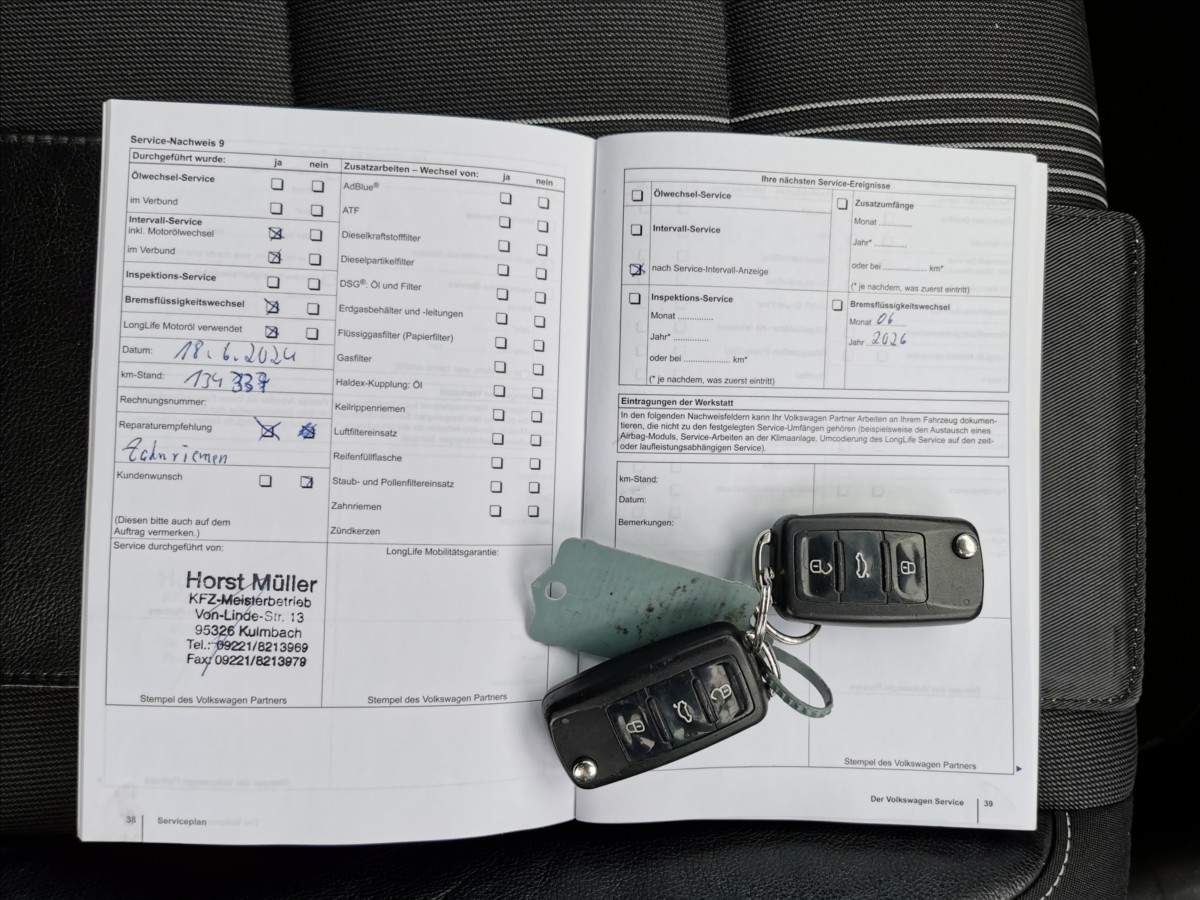 Service-Nachweis 9
Durchgeführt wurde: ja nein
Ölwechsel-Service
im Verbund
Intervall-Service
inkl. Motorölwechsel
im Verbund
Inspektions-Service
Bremsflüssigkeitswechsel
LongLife Motoröl verwendet
Datum: 18.6.2024
km-Stand: 134
Rechnungsnummer:
Reparaturempfehlung
Zahnriemen
Kundenwunsch
(Diesen bitte auch auf dem
Auftrag vermerken.)
Zusatzarbeiten – Wechsel von: ja nein
AdBlue®
ATF
Dieselkraftstofffilter
Dieselpartikelfilter
DSG®: Öl und Filter
Erdgasbehälter und -leitungen
Flüssiggasfilter (Papierfilter)
Gasfilter
Haldex-Kupplung: Öl
Keilrippenriemen
Luftfiltereinsatz
Reifenfüllflasche
Staub- und Pollenfiltereinsatz
Zahnriemen
Zündkerzen
Service durchgeführt von:
Horst Müller
KFZ-Meisterbetrieb
Von-Linde-Str. 13
95326 Kulmbach
Tel.: 09221/8213969
Fax: 09221/8213979
Stempel des Volkswagen Partners
LongLife Mobilitätsgarantie:
Stempel des Volkswagen Partners
38 Serviceplan
Ihre nächsten Service-Ereignisse
Ölwechsel-Service
Intervall-Service
nach Service-Intervall-Anzeige
Inspektions-Service
Monat ..............
Jahr* ..............
oder bei .................. km*
(* je nachdem, was zuerst eintritt)
Zusatzumfänge
Monat ............
Jahr* ............
oder bei .................. km*
(* je nachdem, was zuerst eintritt)
Bremsflüssigkeitswechsel
Monat 06
Jahr 2026
Eintragungen der Werkstatt
In den folgenden Nachweisfeldern kann Ihr Volkswagen Partner Arbeiten an Ihrem Fahrzeug dokumen-
tieren, die nicht zu den festgelegten Service-Umfängen gehören (beispielsweise den Austausch eines
Airbag-Moduls, Service-Arbeiten an der Klimaanlage, Umcodierung des LongLife Service auf den zeit-
oder laufleistungsabhängigen Service).
km-Stand:
Datum:
Bemerkungen:
Stempel des Volkswagen Partners
Der Volkswagen Service 39